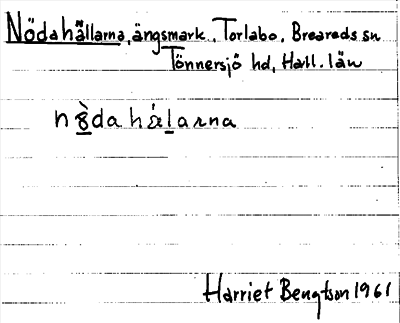 Nödahällarna, ängsmark. Torlabo, Breareds sn
Tönnersjö hd, Hall. län
nȣ̀dahálarna
Harriet Bengtson 1961